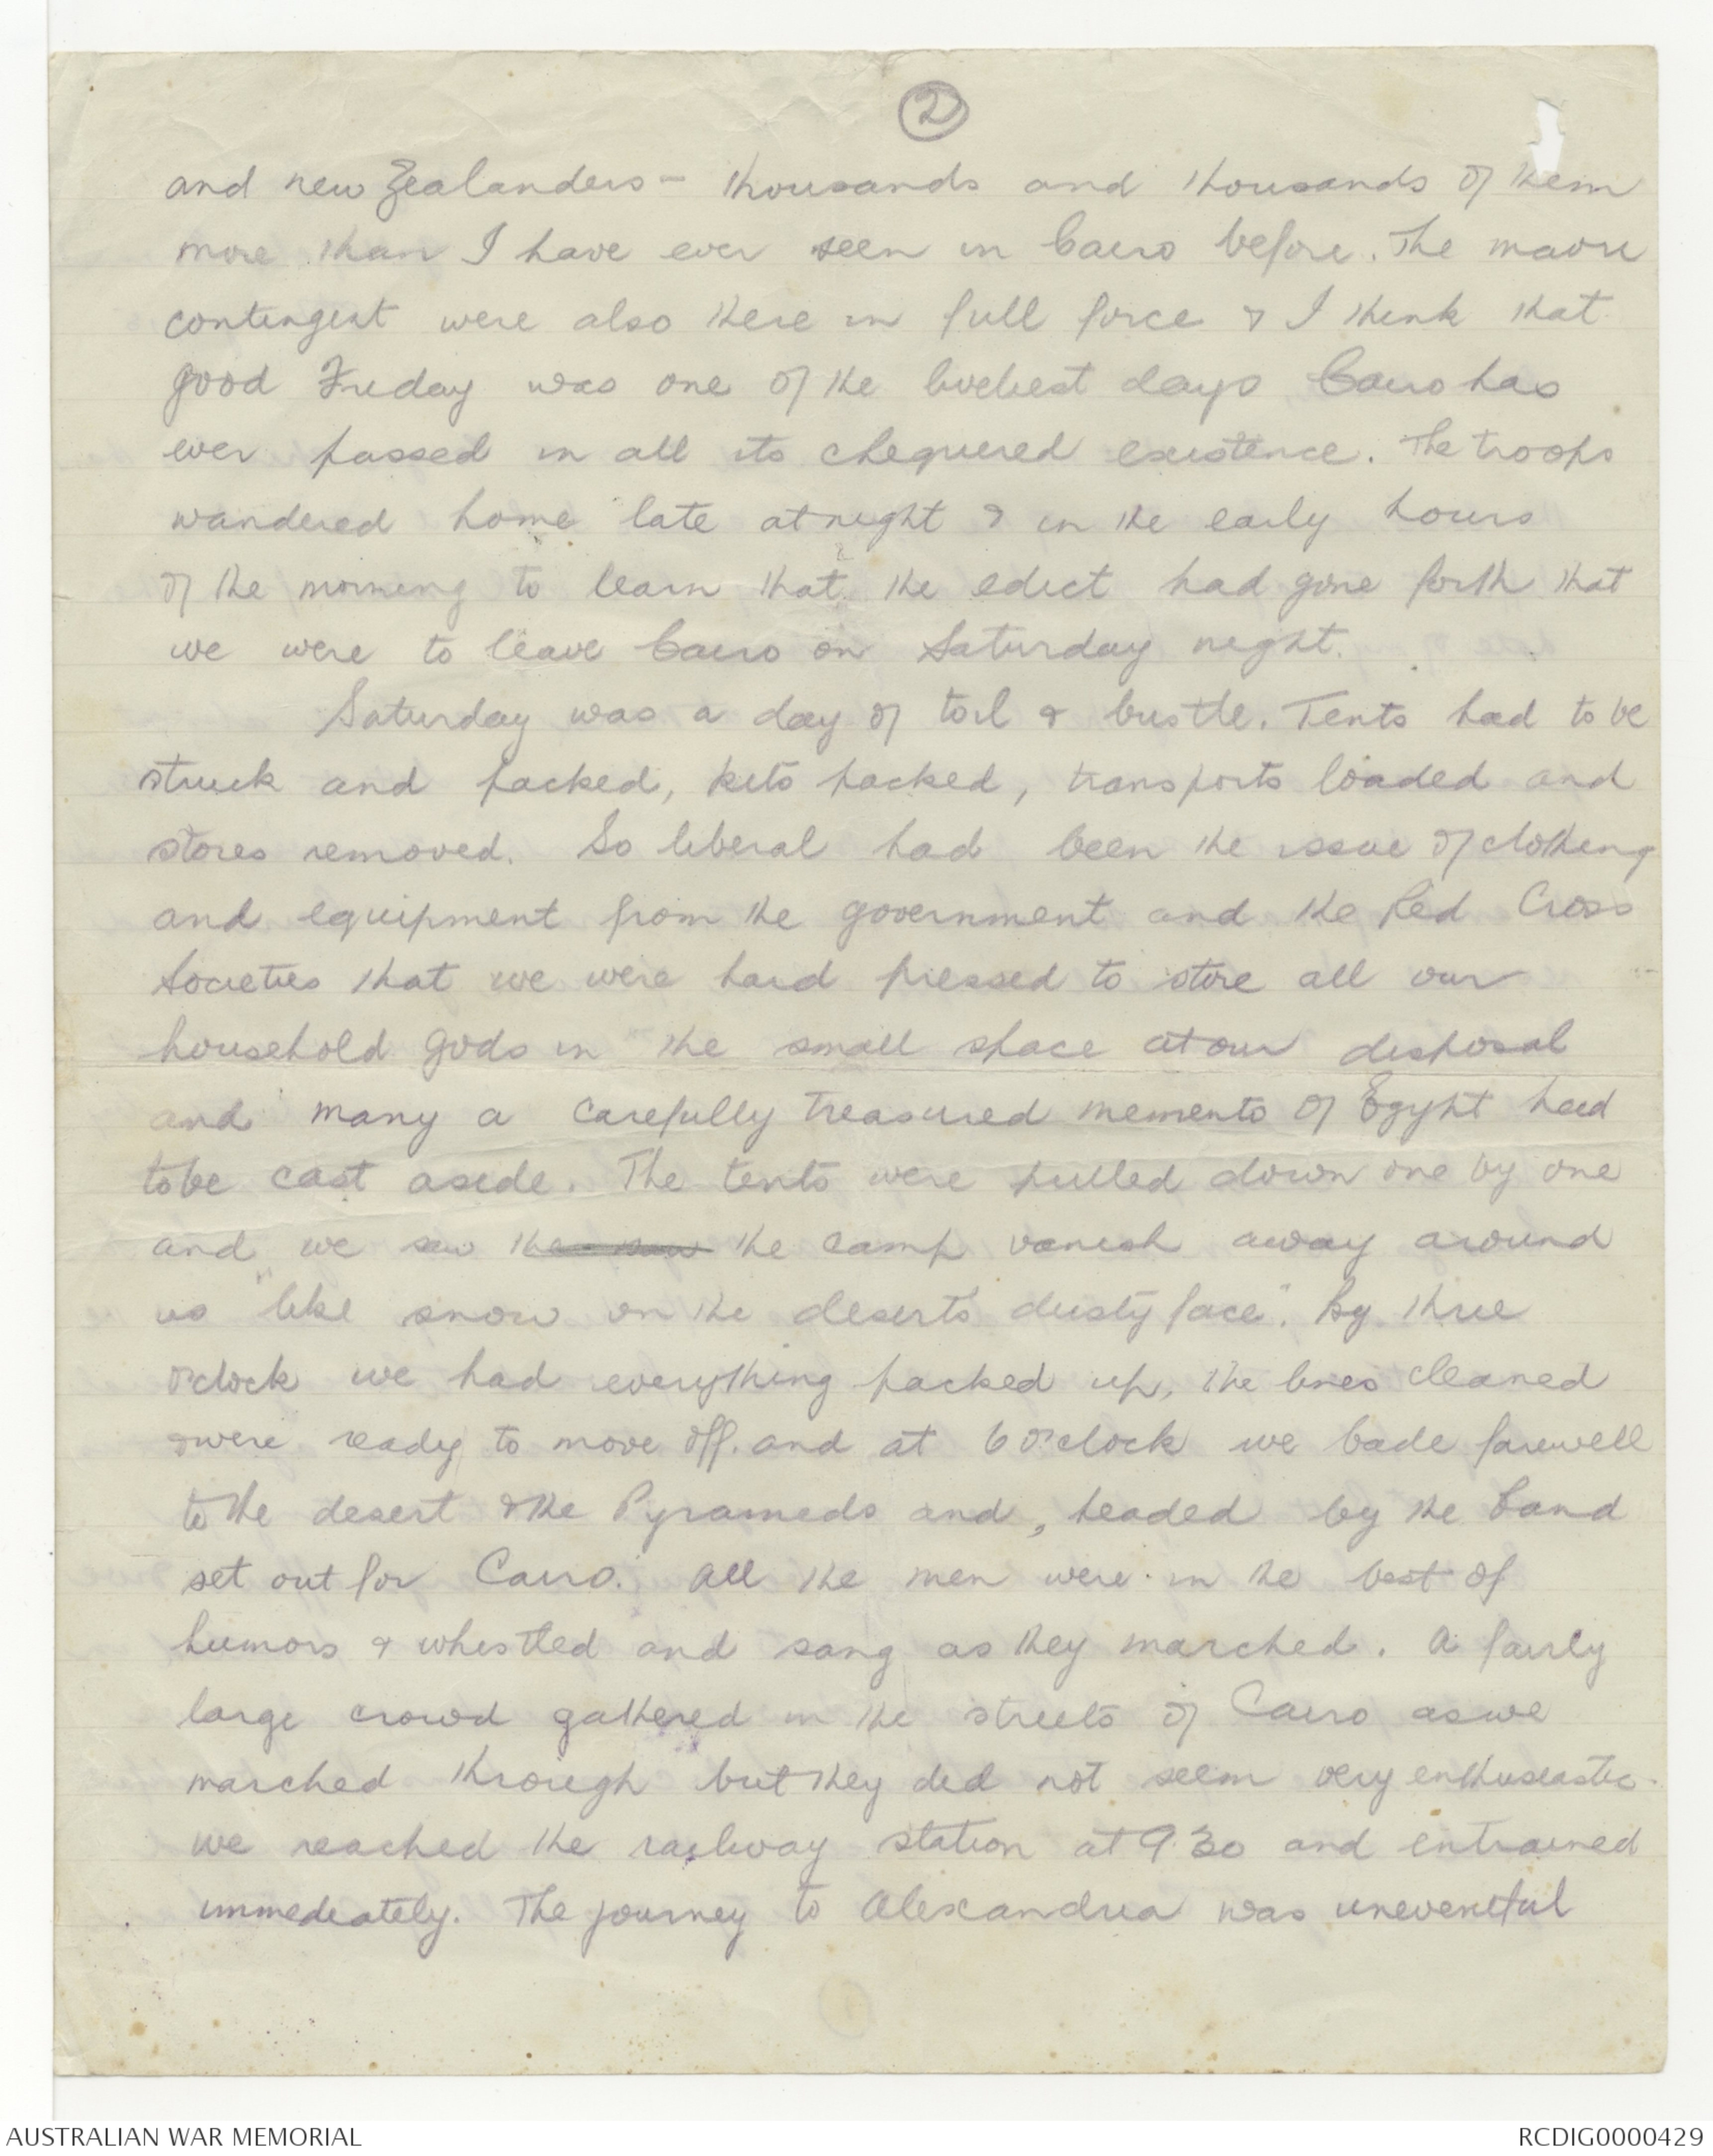 2
and new Zealanders - thousands and thousands of them
more than I have ever seen in Cairo before. The maori
contingent were also there in full force & I think that
good Friday was one of the liveliest days Cairo has
ever passed in all its chequered existence. The troops
wandered home late at night & in the early hours
of the morning to learn that the edict had gone forth that
we were to leave Cairo on Saturday night.
Saturday was a day of toil & bustle. Tents had to be
struck and packed, kits packed, transports loaded and
stores removed. So liberal had been the issue of clothing
and equipment from the government and the Red Cross
Societies that we were hard pressed to store all our
household gods in the small space at our disposal
and many a carefully treasured memento of Egypt had
to be cast aside. The tents were pulled down one by one
and we saw the saw the camp vanish away around
us "like snow on the deserts dusty face". By three
o'clock we had everything packed up, the lines cleaned
& were ready to move off. and at 6 o'clock we bade farewell
to the desert & the Pyramids and, headed by the band
set out for Cairo. All the men were in the best of
humors & whistled and sang as they marched. A fairly
large crowd gathered in the streets of Cairo as we
marched through but they did not seem very enthusiastic.
we reached the railway station at 9.30 and entrained
immediately. The journey to Alexandria was uneventful
AUSTRALIAN WAR MEMORIAL
RCDIG0000429